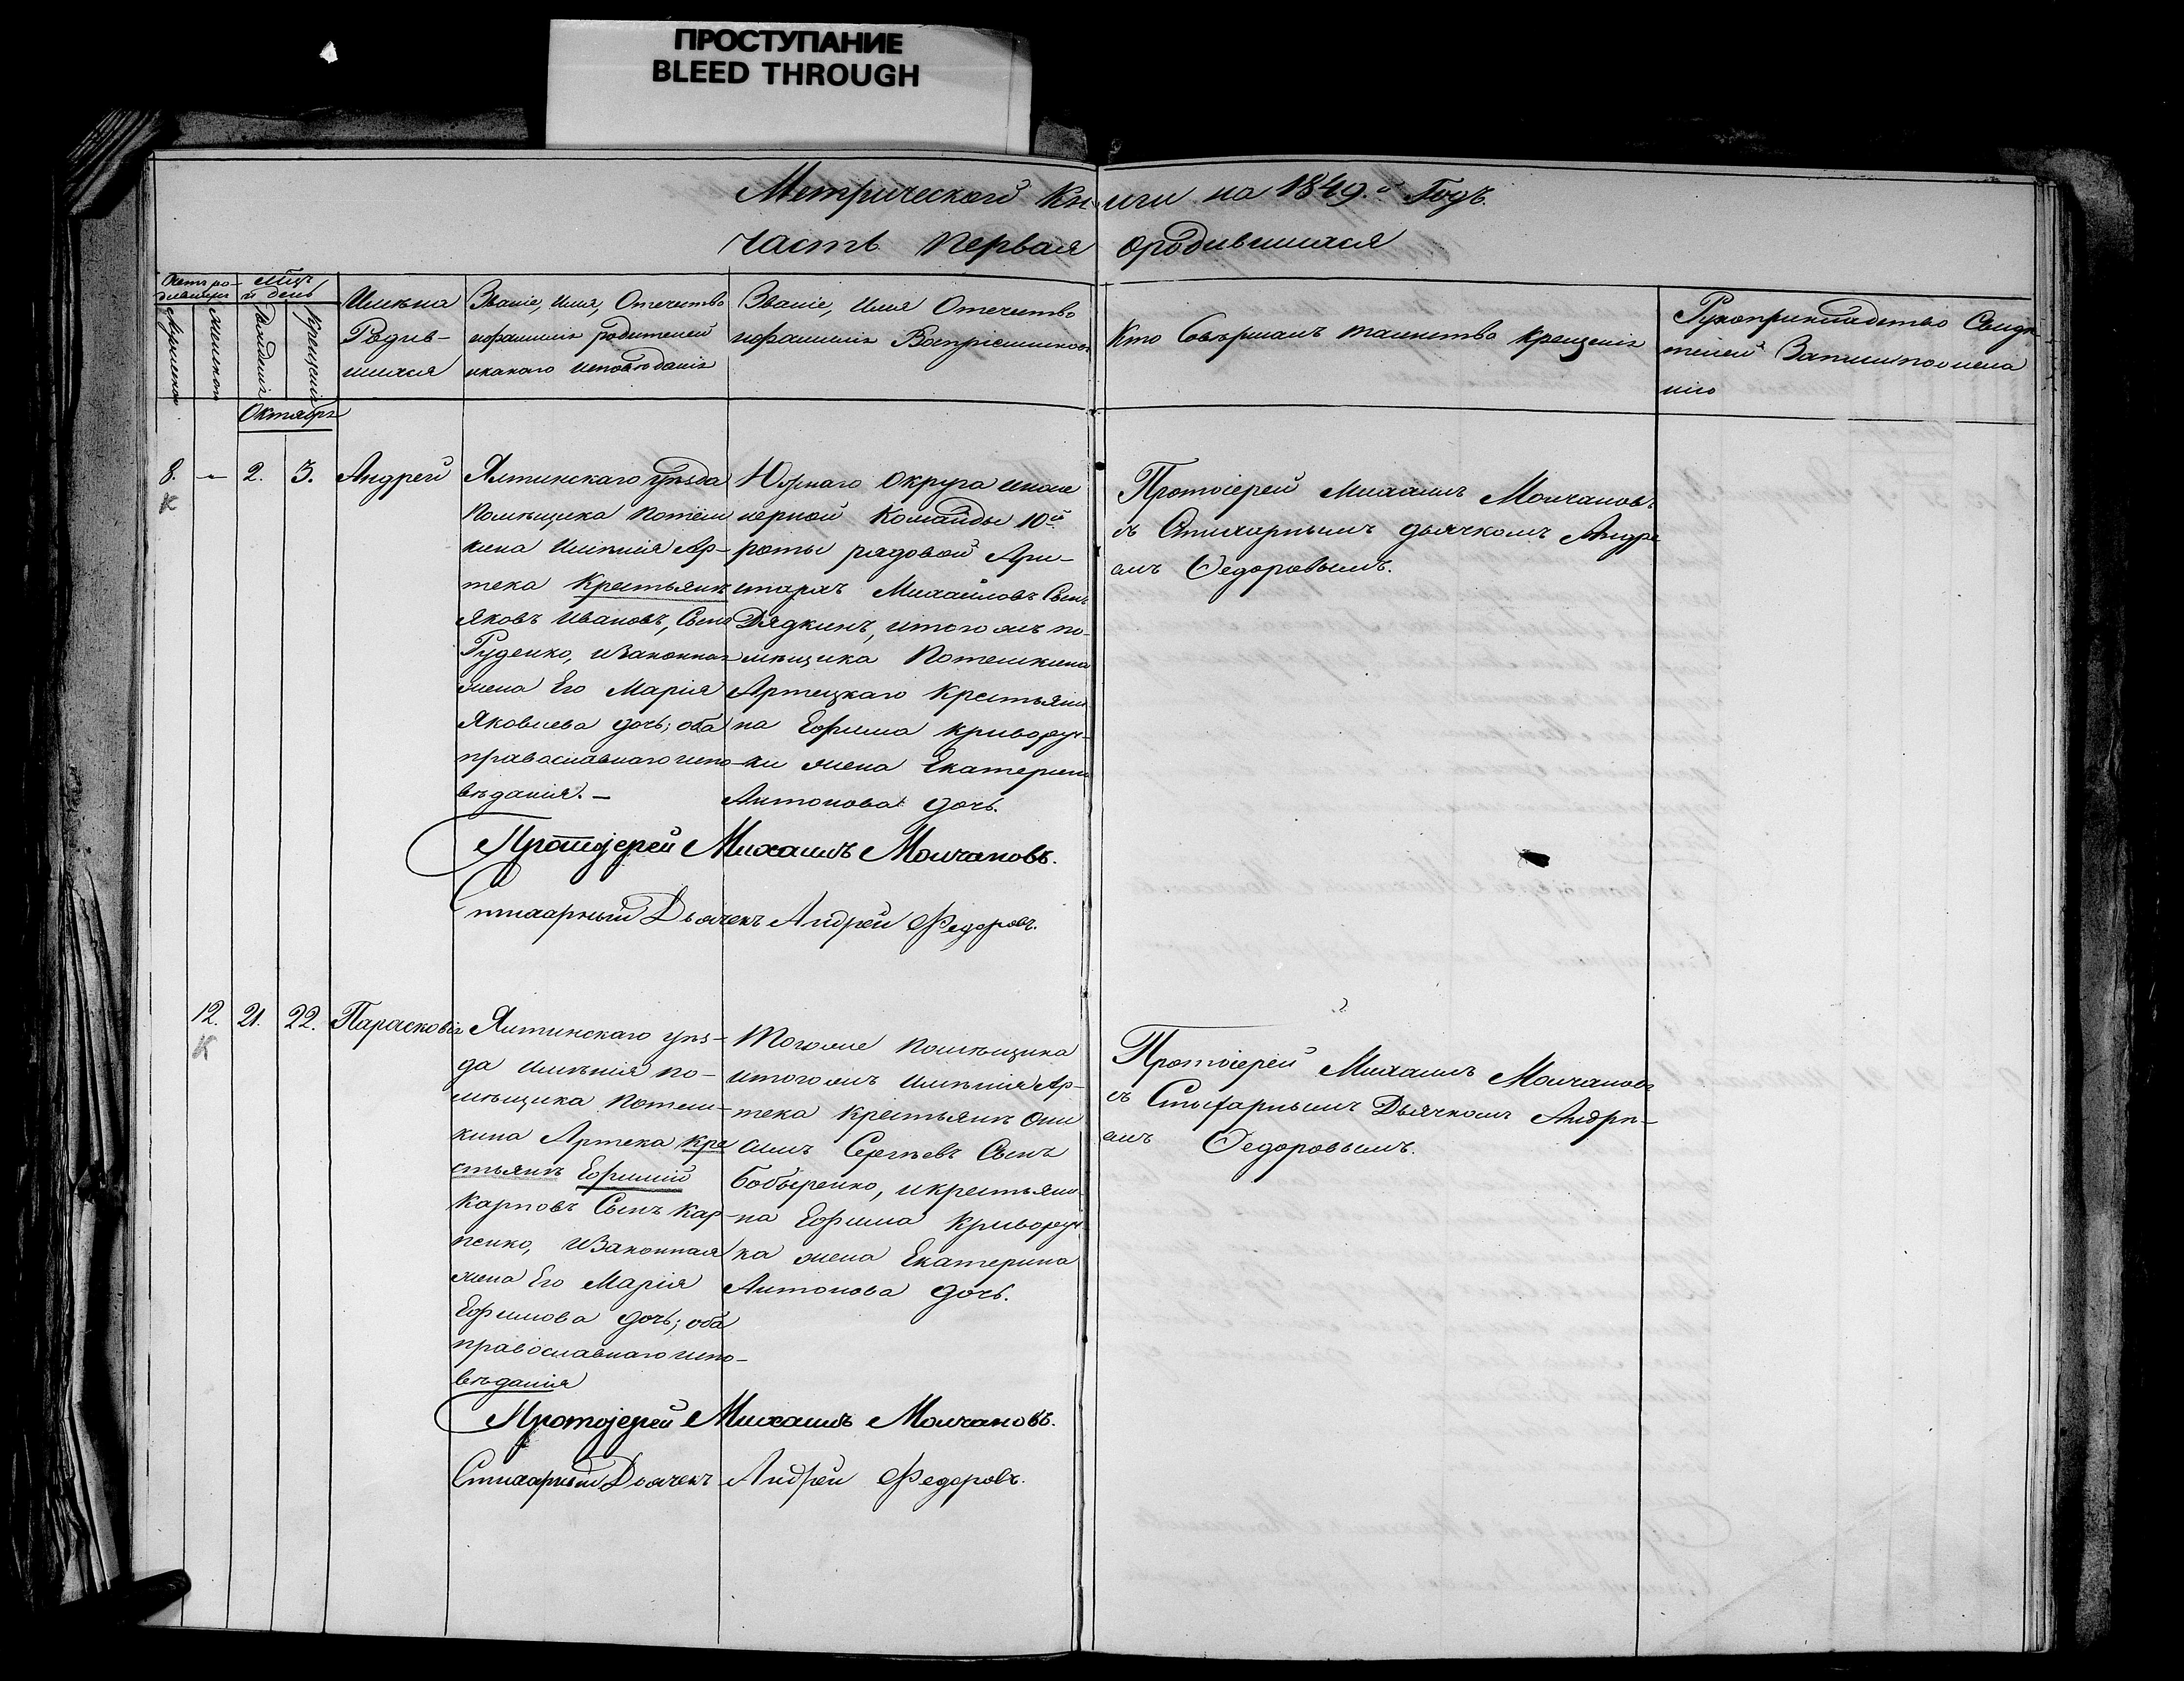 ПРОСТУПАНИЕ
BLEED THROUGH
Метрической Книги на 1849.й Годъ.
Часть Первая ородившихся
Счетъ ро-
дившихся
Мужеска
Женска
Мцъ
и день
Рожденія
Крещенія
Имѣна
Родив-
шихся
Званіе, Имя, Отечество
ифамилія родителей
икакаго исповѣданія
Званіе, Имя Отечество
ифамилія Воспріемниковъ
Кто Совѣршалъ таинство крещенія
Рукоприкладство Свидѣ
телей Записи пожела
нію
Октябрь
8.
К
—
2.
3.
Андрей
Ялтинскаго Уѣзда
Помѣщика Потем
кина Имѣнія Ар-
тека Крестьянинъ
Яковъ Ивановъ, Сынъ
Руденко, иЗаконная
жена Его Марія
Яковлева дочь; оба
православнаго испо-
вѣданія. —
Южнаго Округа инже
нерной Команды 10й
роты рядовой Ари-
стархъ Михайловъ Сынъ
Дядкинъ, итого жъ по-
мѣщика Потемкина
Артецкаго Крестьяни
на Ефима Криворуч-
ки жена Екатерина
Антонова дочь.
Протоіерей Михаилъ Молчановъ
съ Стихарнымъ дьячкомъ Андре
емъ Федоровымъ.
Протоjерей Михаилъ Молчановъ.
Стихарный Дьячекъ Андрей Федоровъ.
12.
К
21.
22.
Парасковія
Ялтинскаго уѣз-
да Имѣнія по-
мѣщика Потем-
кина Артека Кре
стьянинъ Ефимій
Карповъ Сынъ Кар-
пенко, иЗаконная
жена Его Марія
Ефимова дочь; оба
православнаго испо-
вѣданія
Тогоже Помѣщика
итогожъ Имѣнія Ар-
тека Крестьянинъ Они
симъ Сергѣевъ Сынъ
Бобыренко, икрестьяни
на Ефима Криворуч
ка жена Екатерина
Антонова дочь.
Протоіерей Михаилъ Молчановъ
съ Стихарнымъ Дьячкомъ Андрѣ-
емъ Федоровымъ.
Протоjерей Михаилъ Молчановъ.
Стихарный Дьячекъ Андрей Федоровъ.